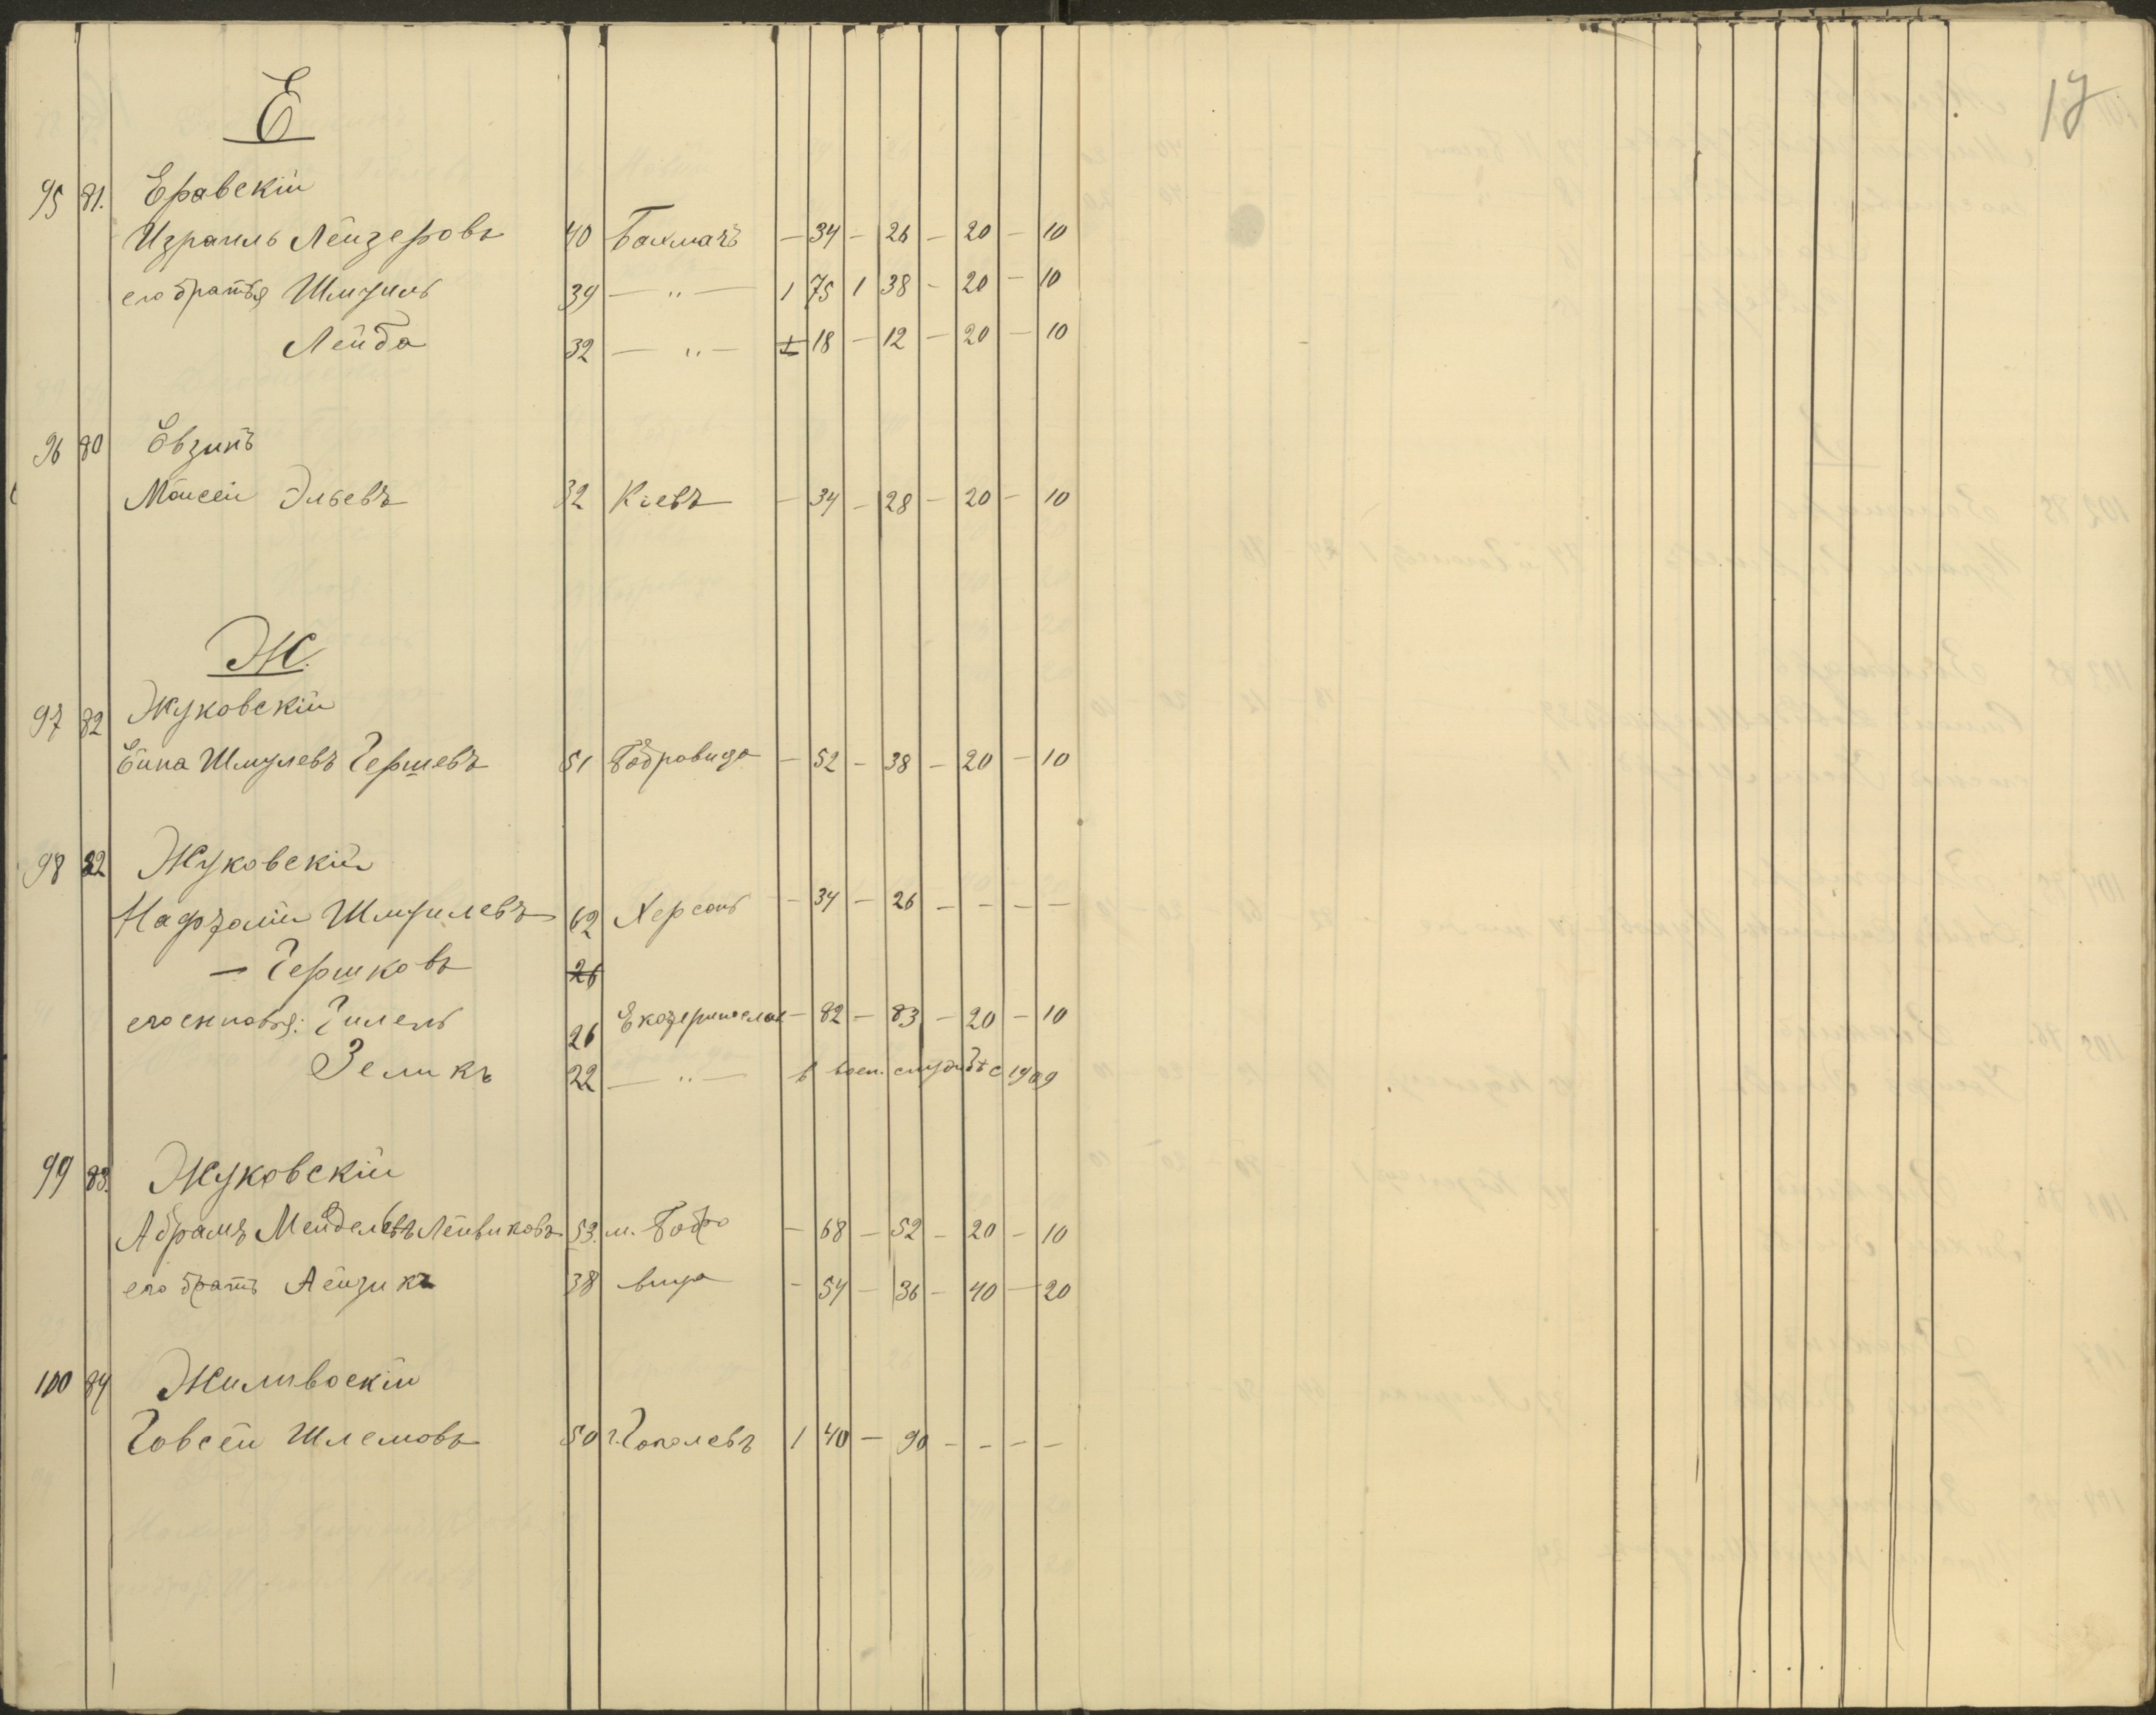 17
Е
95 81. Еравскій
Израиль Лейзеровъ 40 Бахмачъ — 34 — 26 — 20 — 10
его братья Шмуилъ 39 — " — 1 75 1 38 — 20 — 10
Лейба 32 — " — 18 — 12 — 20 — 10
96 80 Евзинъ
Мойсей Эльевъ 32 Кіевъ — 34 — 28 — 20 — 10
Ж.
97 82 Жуковскій
Ейна Шмулевъ Гершевъ 51 Бобровица — 52 — 38 — 20 — 10
98 82 Жуковскій
Нафталій Шмуилевъ 62 Херсонъ — 34 — 26 — — — —
— Гершковъ 26
его сыновья: Гилель 26 Екатеринослав — 82 — 83 — 20 — 10
Зеликъ 22 — " — в воен. службѣ с 1909
99 83. Жуковскій
Абрамъ Мейделевъ Лейвиковъ 53. м. Бобро — 68 — 52 — 20 — 10
его братъ Айзикъ 38 вица — 54 — 36 — 40 — 20
100 84 Жиливоскій
Говсей Шлемовъ 50 г. Гополевъ 1 40 — 90 — — — —